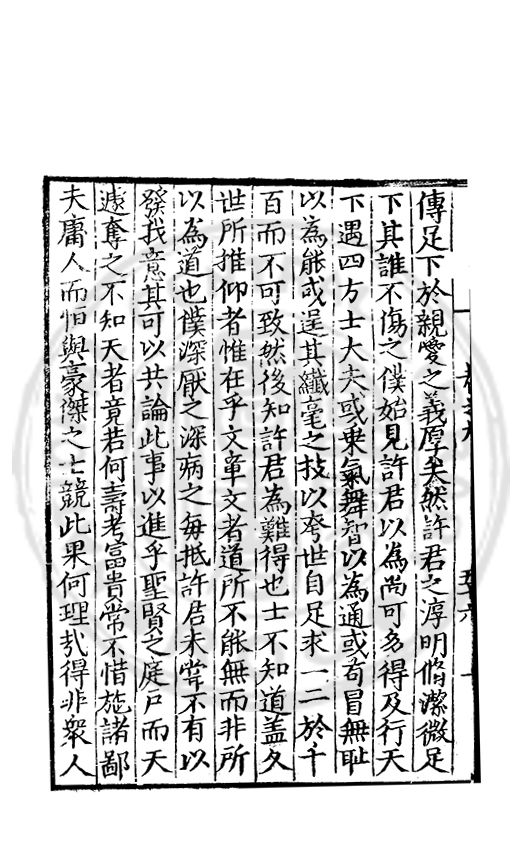 傳足下於親愛之義厚矣然許君之淳明脩潔微足
下其誰不傷之僕始見許君以為尚可多得及行天
下遇四方士大夫或乗氣舞智以為通或苟冒無耻
以為能或逞其纖毫之技以夸世自足求一二於千
百而不可致然後知許君為難得也士不知道盖久
世所推仰者惟在乎文章文者道所不能無而非所
以為道也僕深厭之深病之每抵許君未嘗不有以
發我意其可以共論此事以進乎聖賢之庭戶而天
遽奪之不知天者竟若何壽考富貴常不惜施諸鄙
夫庸人而恒與豪傑之士競此果何理㢤得非衆人